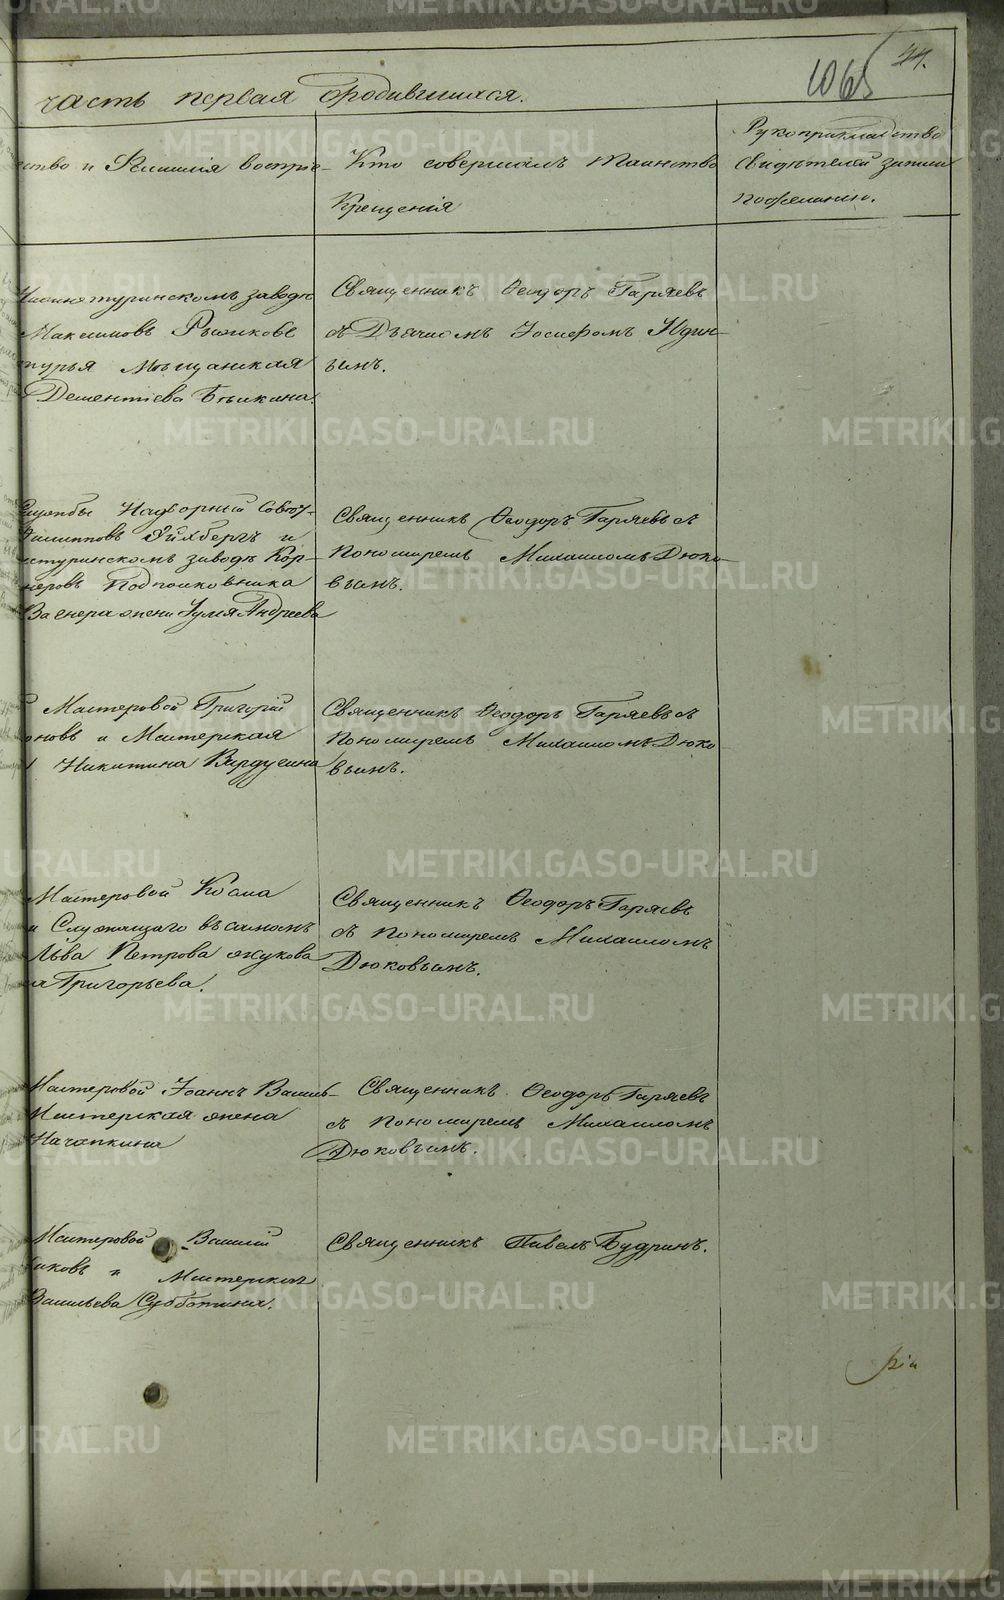 1065
44.
часть первая о родившихся.
ство и Фамилія воспріе-
Кто совершалъ таинство
Крещенія
Рукоприкладство
свидѣтелей записи
по желанію.
Нижнетуринскомъ заводѣ
Максимовъ Рыжкове
Мѣщанская
Дементіева Бѣлкина.
Священникъ Ѳеодоръ Гаряевъ
съ Дьячкомъ Іосифомъ Юдин-
ымъ.
службы Надворный Совѣт-
Филипповъ и
туринскомъ заводѣ Кор-
неровъ Подполковника
Вагнера жена Юлія Андреева
Священникъ Ѳеодоръ Гаряевъ съ
Пономаремъ Михаиломъ Дюко-
вымъ.
Мастеровой Григорій
оновъ и Мастерская
Никитина Вардугина
Священникъ Ѳеодоръ Гаряевъ съ
Пономаремъ Михаиломъ Дюко
вымъ.
Мастеровой Косма
и Служащаго
Льва Петрова жукова
Григорьева.
Священникъ Ѳеодоръ Гаряевъ
съ Пономаремъ Михаиломъ
Дюковымъ.
Мастеровой Іоаннъ Василь-
Мастерская жена
Начапкина
Священникъ Ѳеодоръ Гаряевъ
съ Пономаремъ Михаиломъ
Дюковымъ.
Мастеровой Василій
иковъ и Мастерская
Васильева Субботина.
Священникъ Павелъ Будринъ.
METRIKI.GASO-URAL.RU